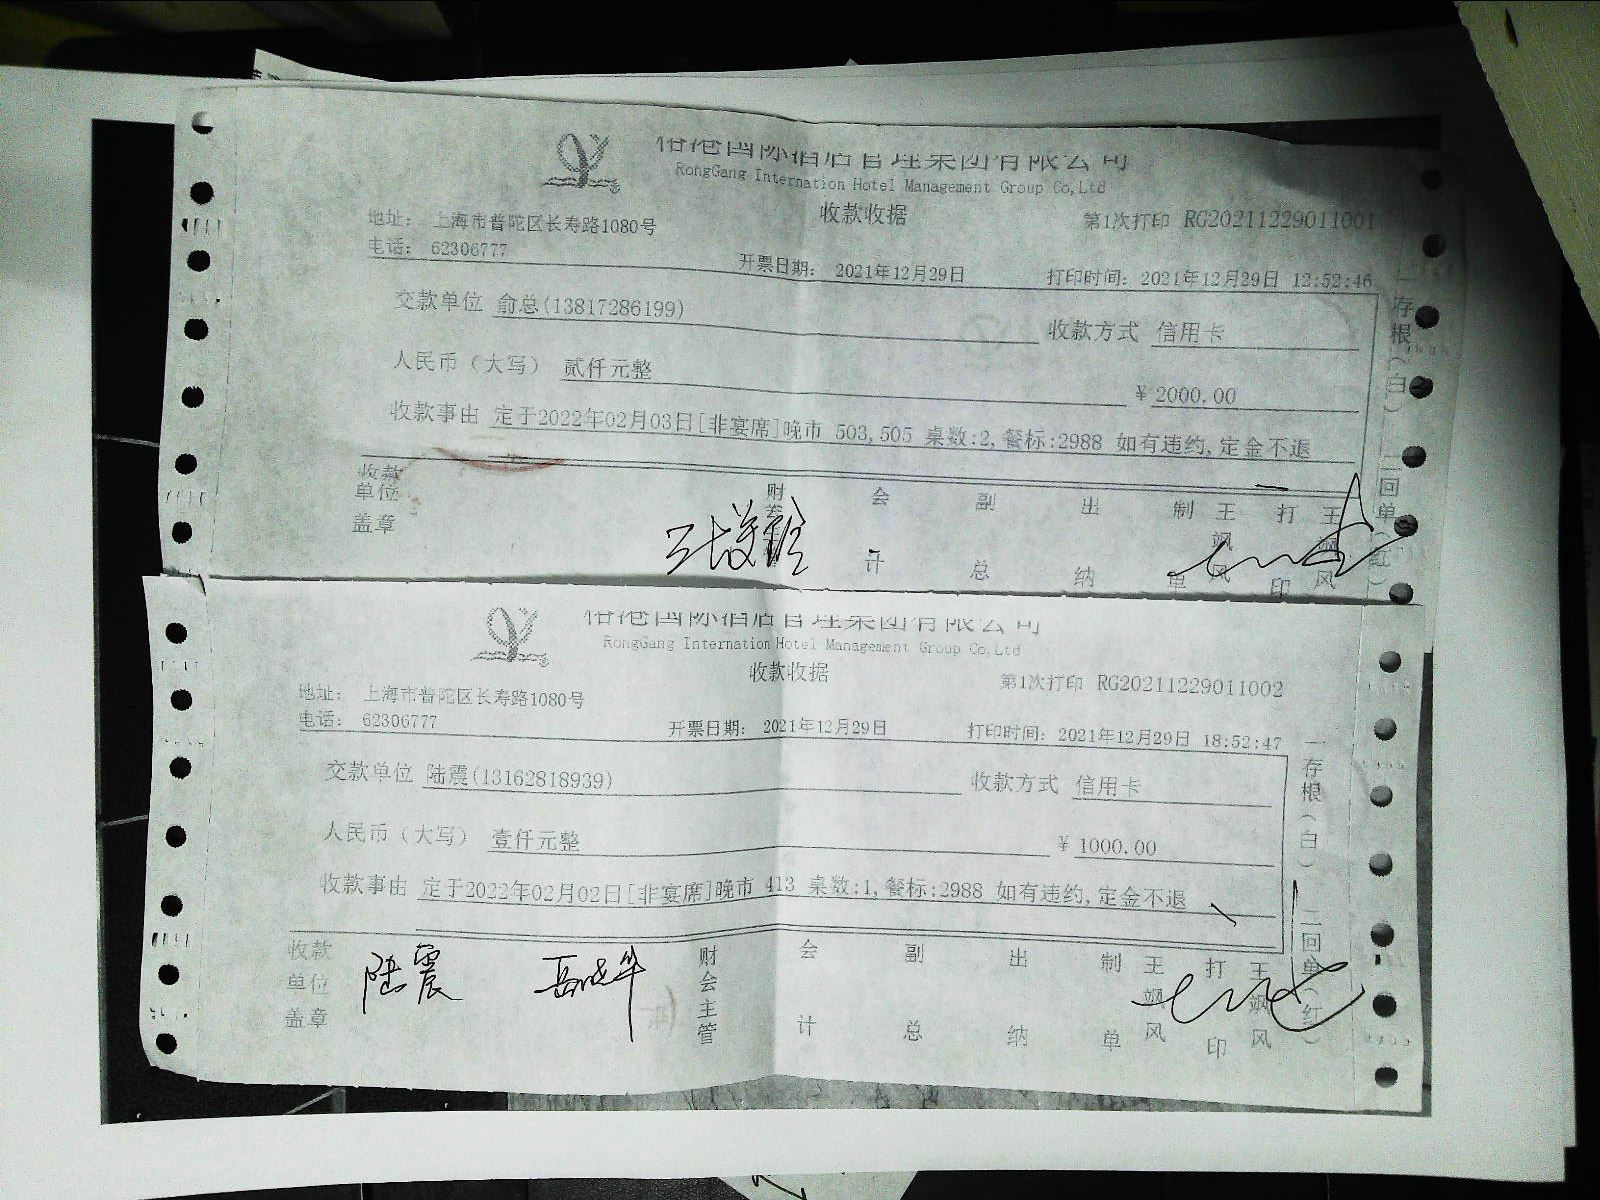 国际酒店管理集团有限公司
RongGang Internation Hotel Management Group Co,Ltd
收款收据
地址： 上海市普陀区长寿路1080号
第1次打印 RG20211229011001
电话： 62306777
开票日期： 2021年12月29日
打印时间：2021年12月29日 12:52:46
交款单位 俞总(13817286199)
收款方式 信用卡
人民币（大写） 贰仟元整
￥2000.00
收款事由 定于2022年02月03日[非宴席]晚市 503,505 桌数:2,餐标:2988 如有违约,定金不退
收款单位盖章
财
会计
副总
出纳
制单 王飓风
打印 王飓风
一存根（白）二回单（红）
国际酒店管理集团有限公司
RongGang Internation Hotel Management Group Co,Ltd
收款收据
地址： 上海市普陀区长寿路1080号
第1次打印 RG20211229011002
电话： 62306777
开票日期： 2021年12月29日
打印时间：2021年12月29日 18:52:47
交款单位 陆震(13162818939)
收款方式 信用卡
人民币（大写） 壹仟元整
￥1000.00
收款事由 定于2022年02月02日[非宴席]晚市 413 桌数:1,餐标:2988 如有违约,定金不退
收款单位盖章
陆震
财会主管
会计
副总
出纳
制单 王飓风
打印 王飓风
一存根（白）二回单（红）